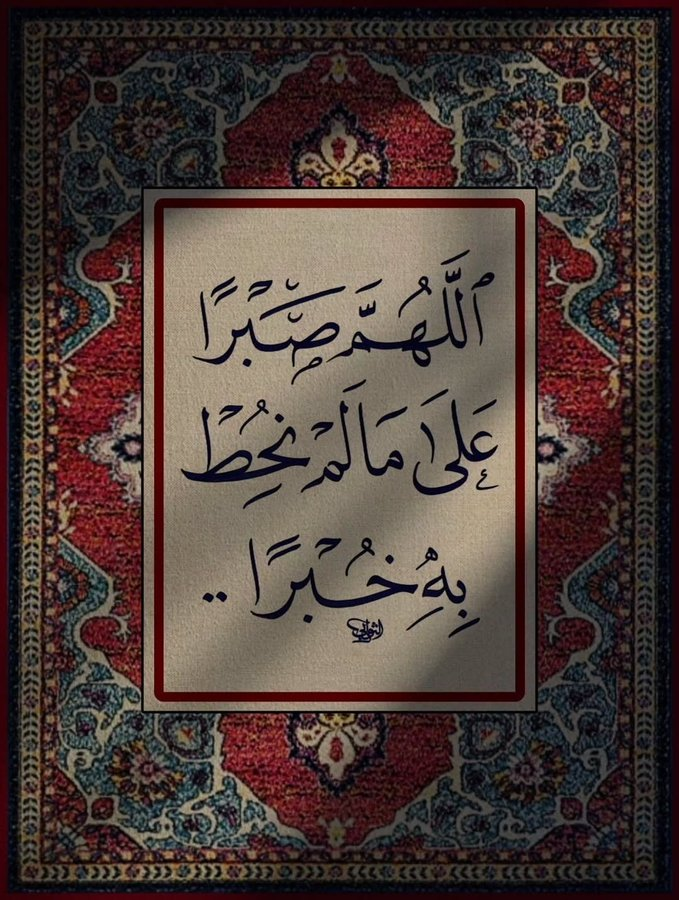 ٱللَّهُمَّ صَبْرًا
عَلَىٰ مَا لَمْ نُحِطْ
بِهِۦ خُبْرًا ..